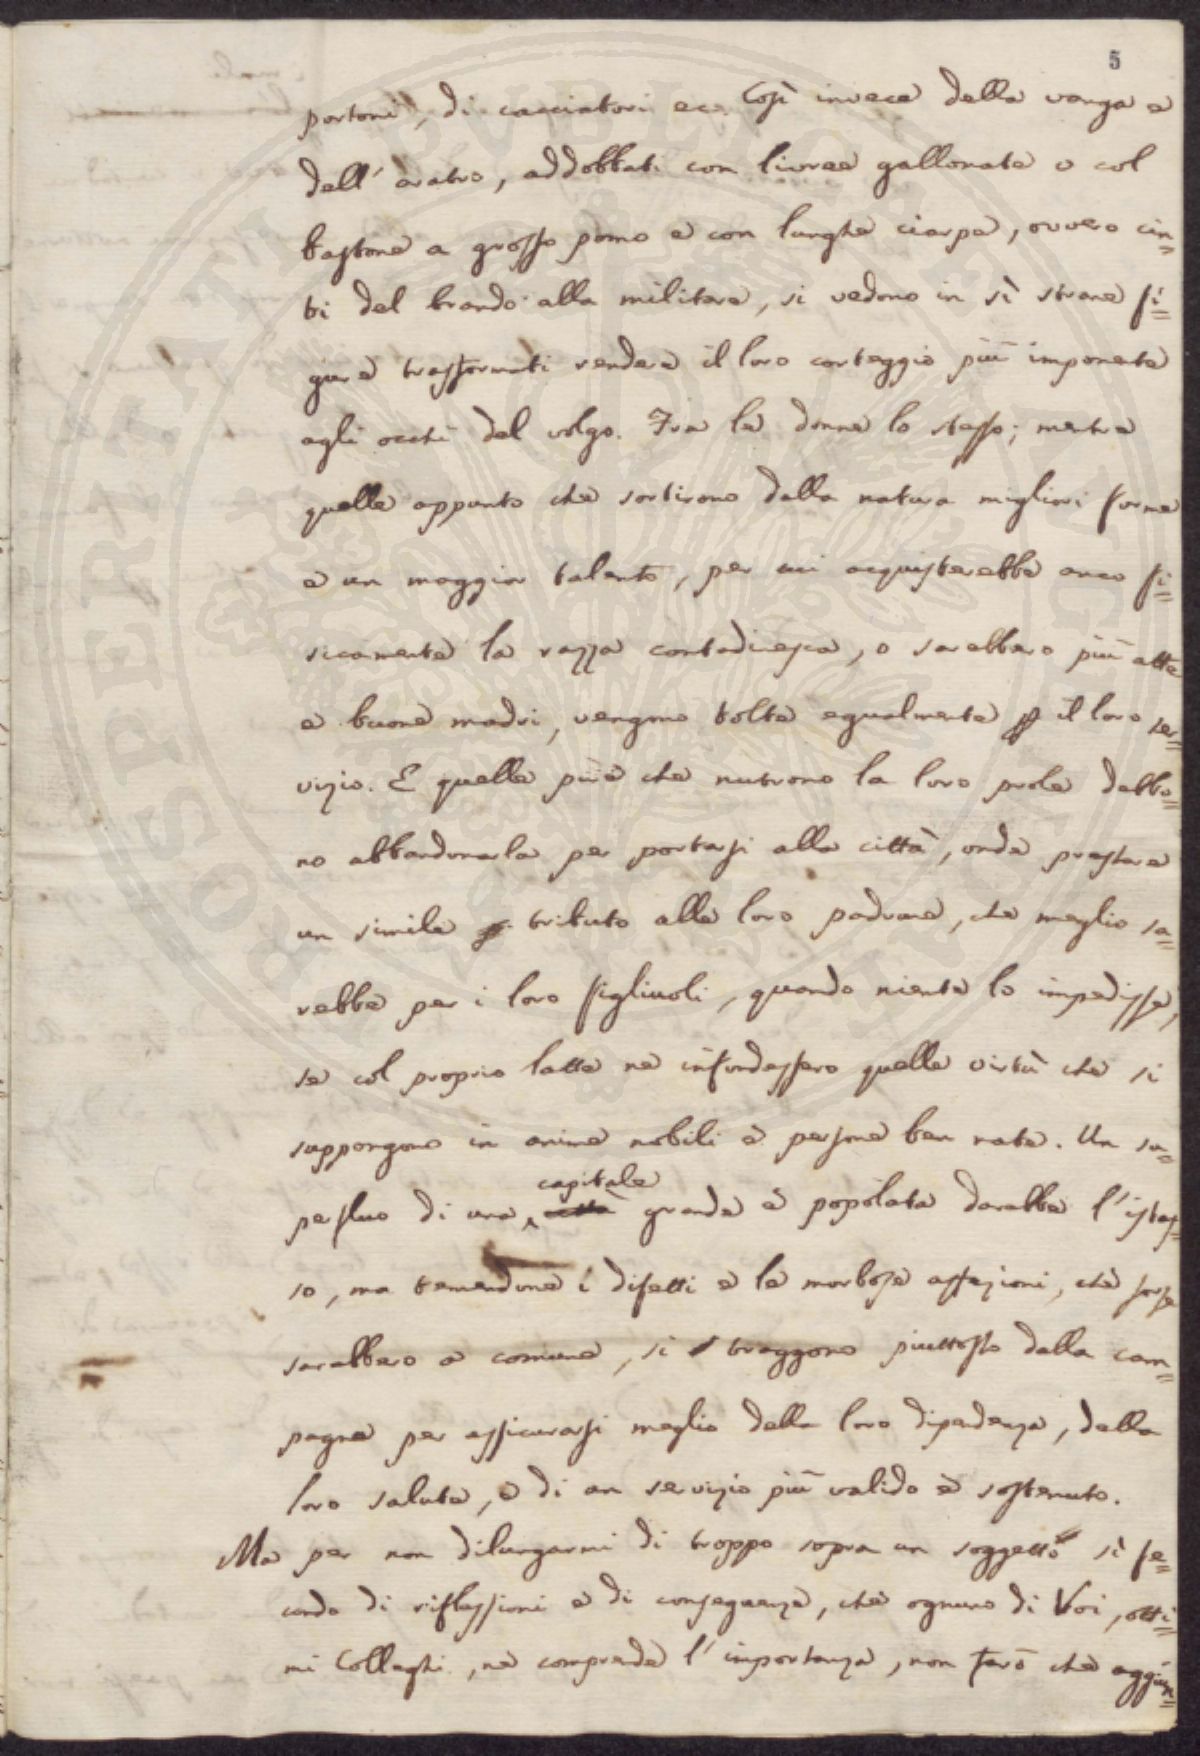 5
portoni, di cacciatori ec. Così invece della vanga e
dell' aratro, addobbati con livree gallonate o col
bastone a grosso pomo e con lunghe ciarpe, ovvero cin=
ti del brando alla militare, si vedono in sì strane fi=
gure trasformati rendere il loro corteggio più imponente
agli occhi del volgo. Fra le donne lo stesso; mentre
quelle appunto che sortirono dalla natura migliori forme
e un maggior talento, per cui acquisterebbe anco fi=
sicamente la razza contadinesca, o sarebbero più atte
e buone madri, vengono tolte egualmente il loro ser=
vizio. E quelle pure che nutrono la loro prole debbo=
no abbandonarla per portarsi alla città, onde prestare
un simile tributo alle loro padrone, che meglio sa=
rebbe per i loro figliuoli, quando niente lo impedisse,
se col proprio latte ne infondessero quelle virtù che si
suppongono in anime nobili e persone ben nate. Un su=
capitale
perfluo di una città grande e popolata darebbe l' istes=
so, ma temendone i difetti e le morbose affezioni, che forse
sarebbero a comune, si traggono piuttosto dalla cam=
pagna per assicurarsi meglio della loro dipendenza, della
loro salute, e di un servizio più valido e sostenuto.
Ma per non dilungarmi di troppo sopra un soggetto sì fe=
condo di riflessioni e di conseguenze, che ognuno di Voi, otti=
mi Colleghi, ne comprende l' importanza, non farò che aggiun=
PROSPERITATI PVBLICAE AVGENDAE